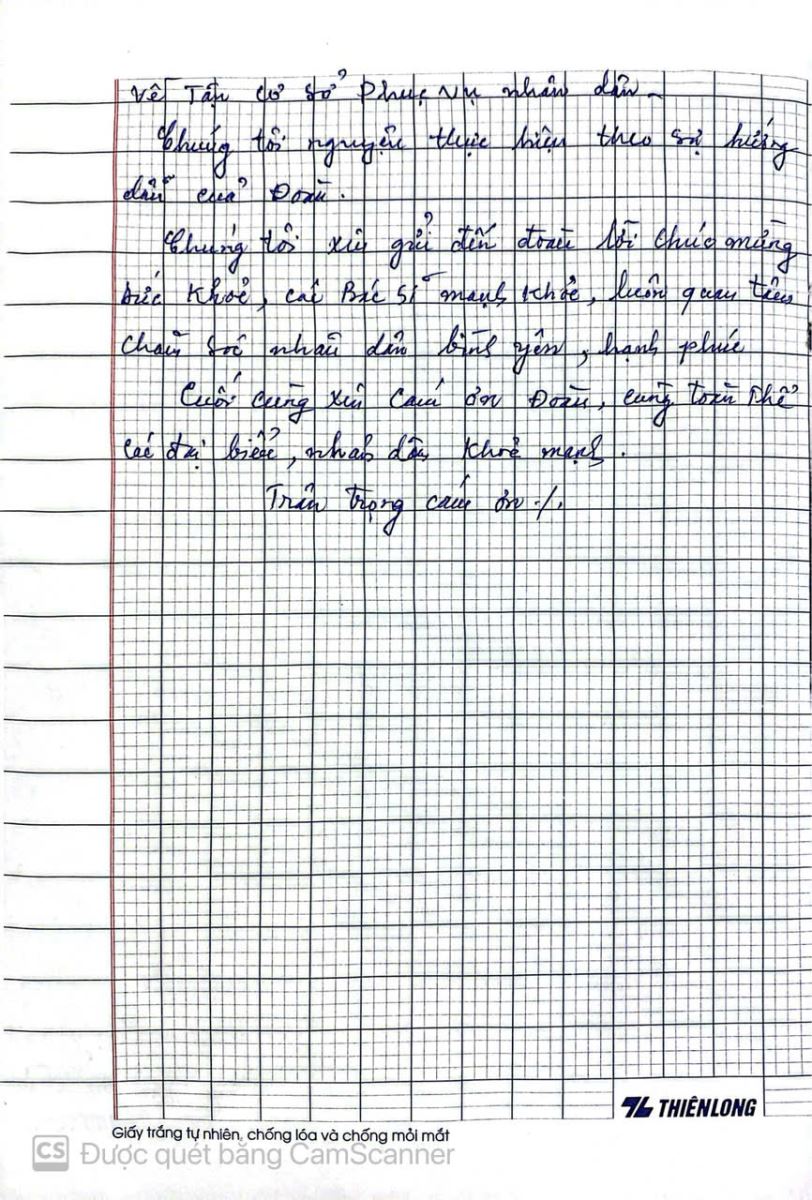 Về Tận cơ sở phục vụ nhân dân.
Chúng tôi nguyện thực hiện theo sự hướng
dẫn của Đoàn.
Chúng tôi xin gửi đến đoàn lời chúc mừng
sức khoẻ, các Bác sĩ mạnh khoẻ, luôn quan tâm
chăm sóc nhân dân bình yên, hạnh phúc
Cuối cùng xin cám ơn Đoàn, cùng toàn thể
các đại biểu, nhân dân khoẻ mạnh.
Trân trọng cám ơn ./.
THIÊN LONG
Giấy trắng tự nhiên, chống lóa và chống mỏi mắt
CS Được quét bằng CamScanner